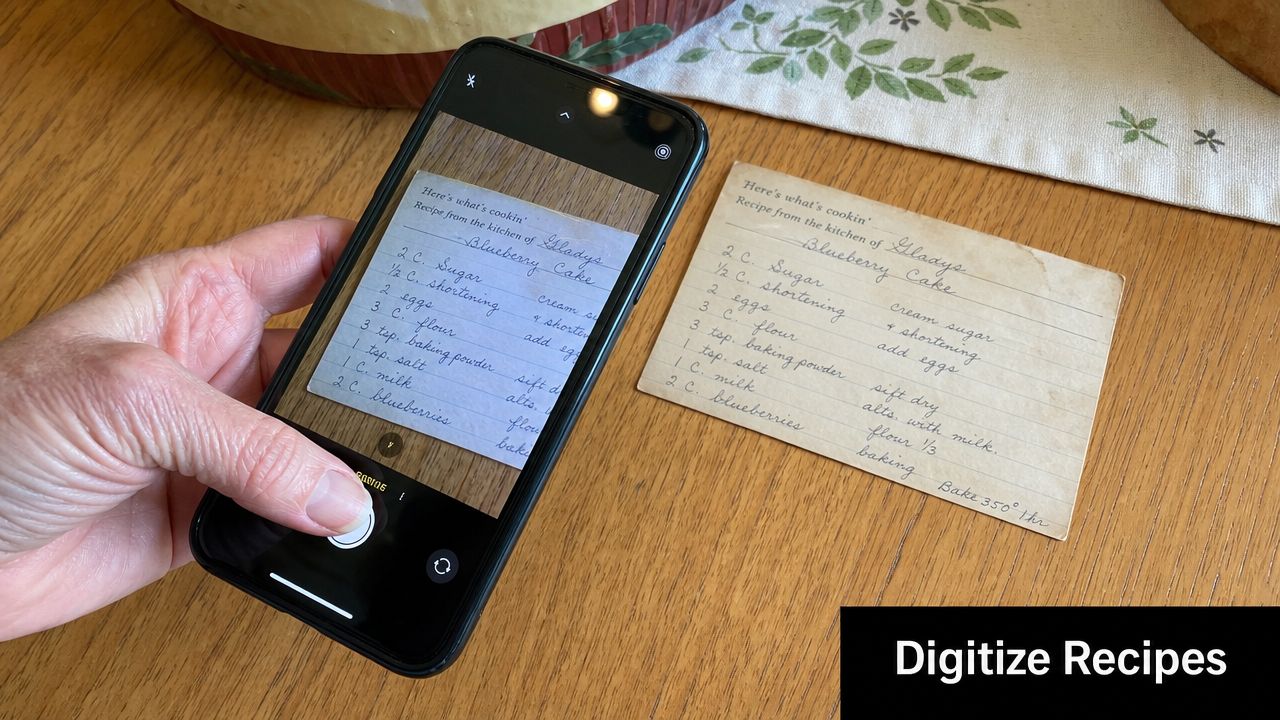 Here's what's cookin'
Recipe from the kitchen of Gladys
Blueberry Cake
2 C. Sugar
½ C. shortening
2 eggs
3 C. flour
3 tsp. baking powder
1 tsp. salt
1 C. milk
2 C. blueberries
cream su
& shorten
add egg
sift d
alts.
flou
bake
Here's what's cookin'
Recipe from the kitchen of Gladys
Blueberry Cake
2 C. Sugar
½ C. shortening
2 eggs
3 C. flour
3 tsp. baking powder
1 tsp. salt
1 C. milk
2 C. blueberries
cream sugar
& shortening
add eggs
sift dry
alts. with milk.
flour 1/3
baking
Bake 350° 1 hr
Digitize Recipes